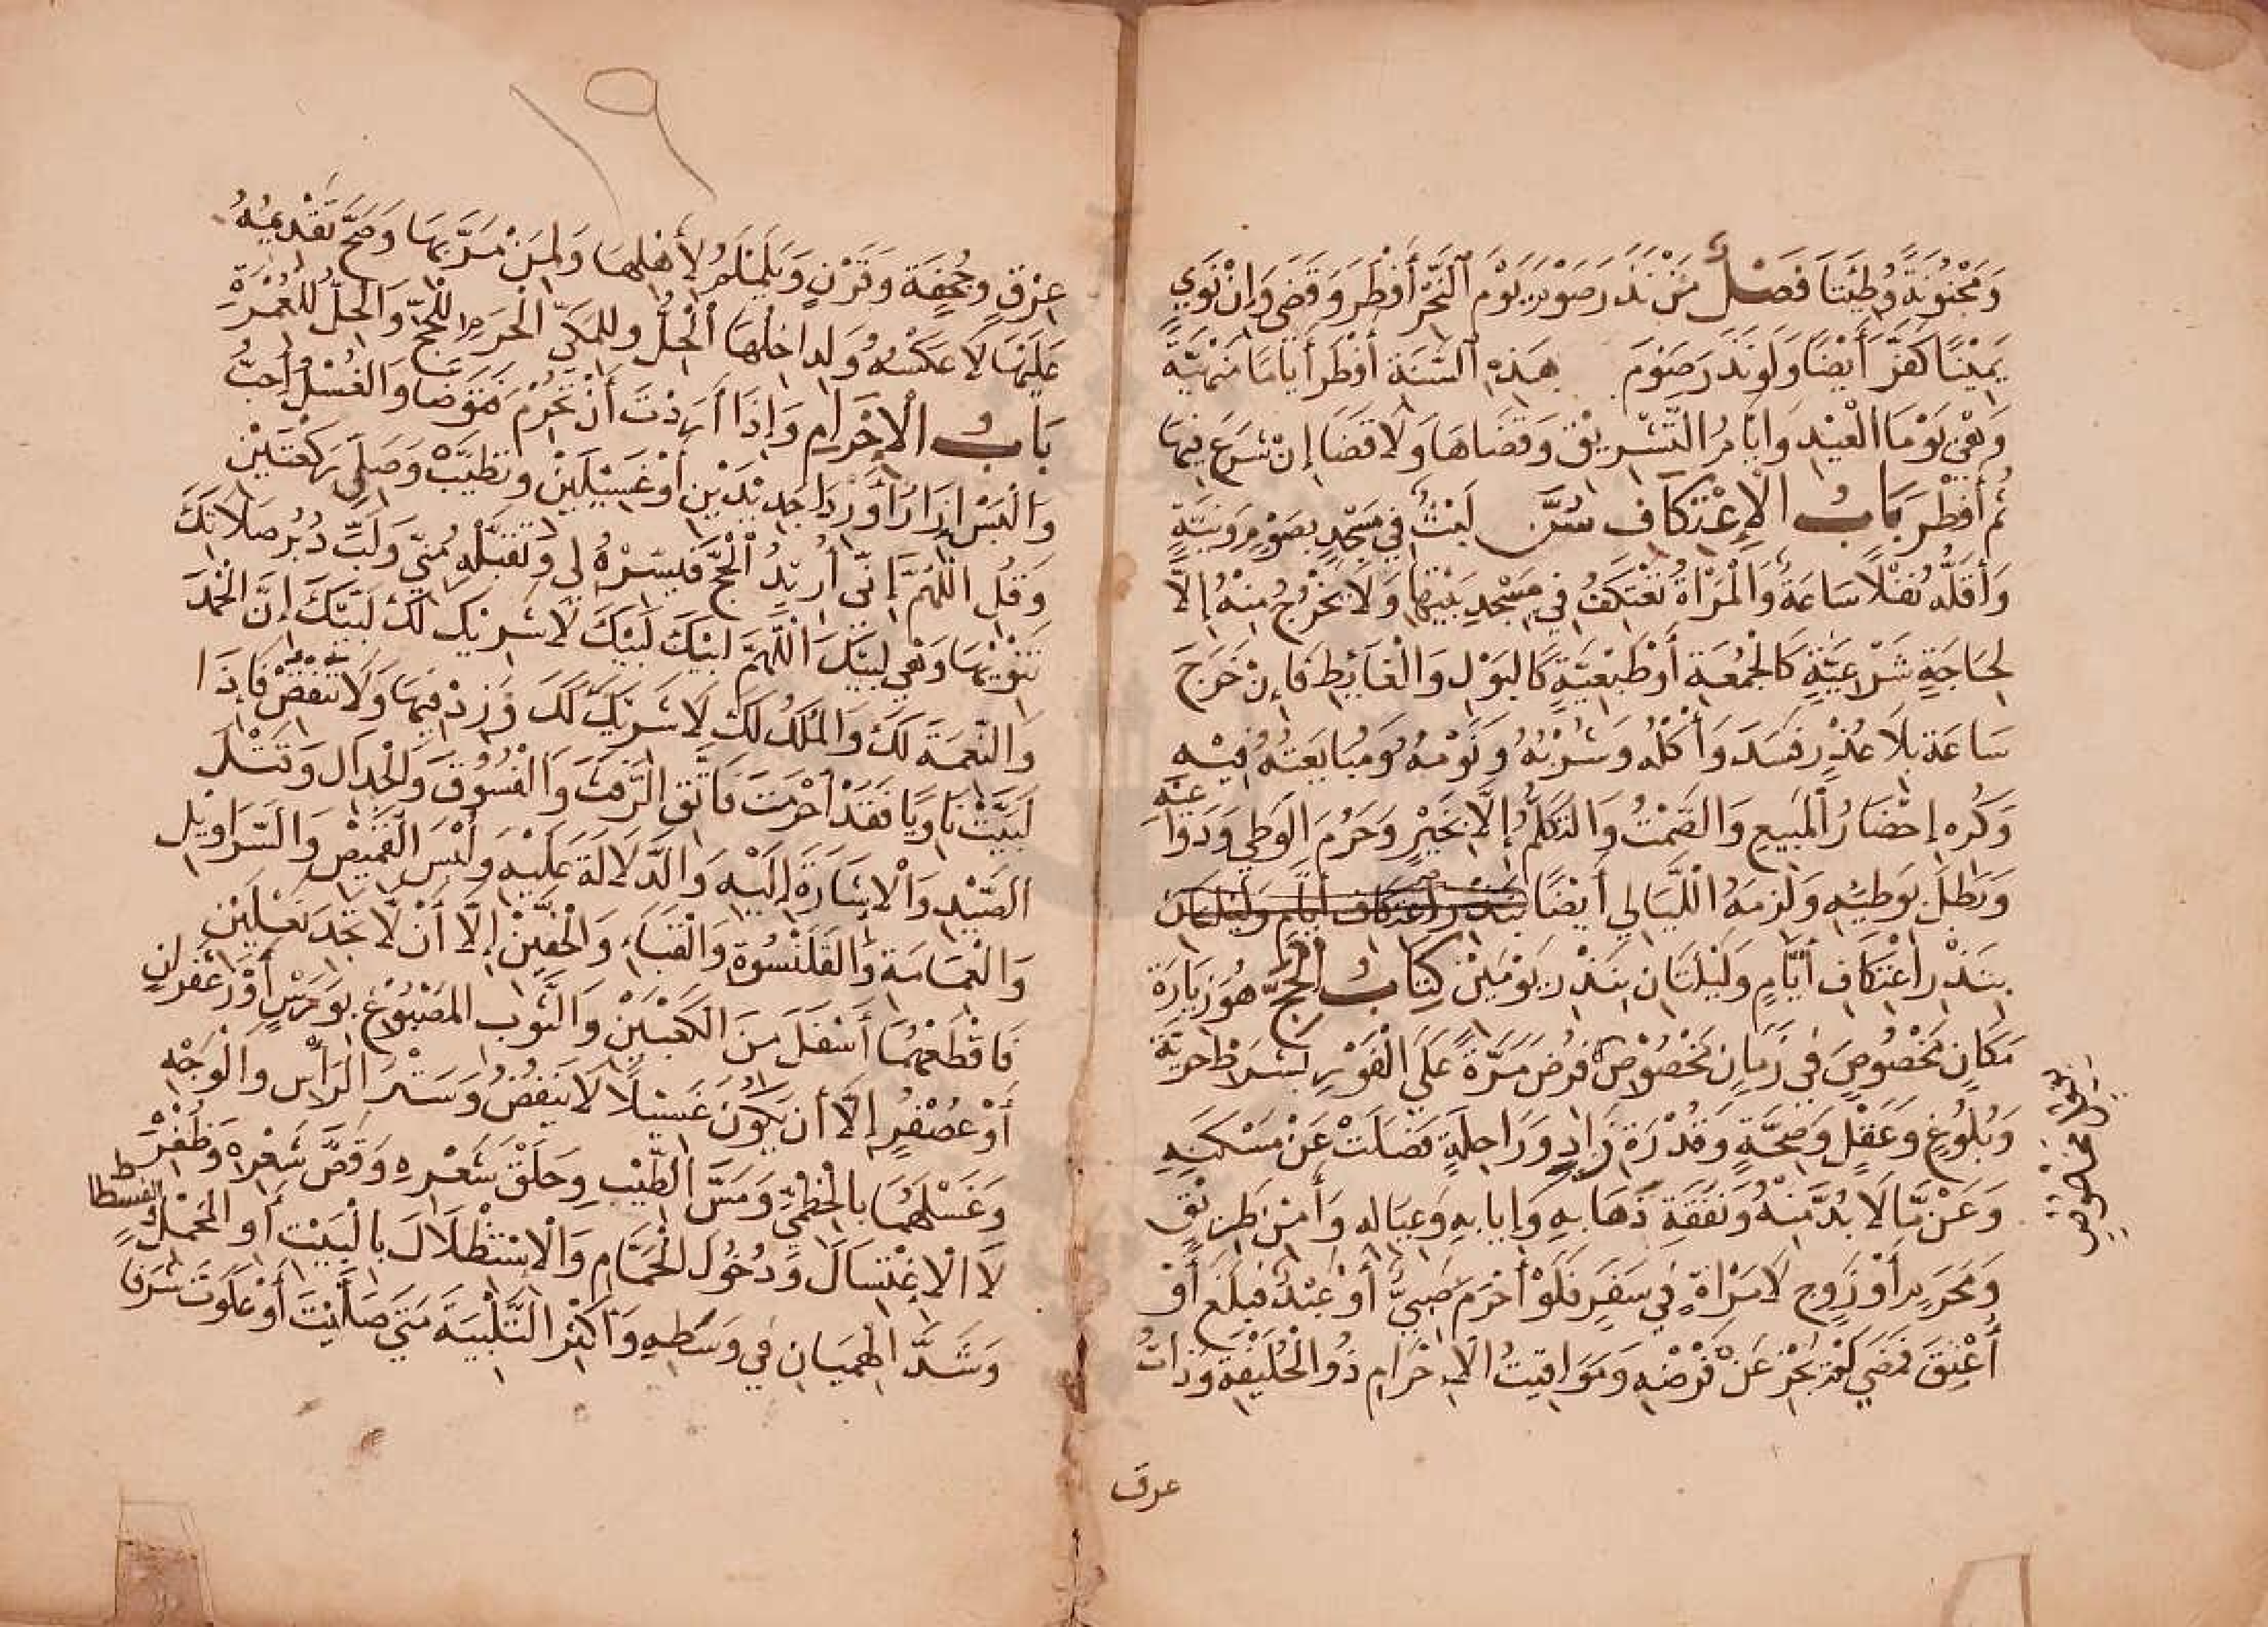 وَمَجْنُونَةٌ وُطِئَتَا فَصْلٌ مَنْ نَذَرَ صَوْمَ يَوْمِ النَّحْرِ أَفْطَرَ وَقَضَى وَإِنْ نَوَى
يَمِيْنًا كَفَّرَ أَيْضًا وَلَوْ نَذَرَ صَوْمَ هَذِهِ السَّنَةِ أَفْطَرَ أَيَّامًا مَنْهِيَّةً
وَهْيَ يَوْمَا الْعِيْدِ وَأَيَّامُ التَّشْرِيْقِ وَقَضَاهَا وَلَا قَضَا إِنْ شَرَعَ فِيْهَا
ثُمَّ أَفْطَرَ بَابُ الْإِعْتِكَافِ سُنَّ لَبْثٌ فِي مَسْجِدٍ بِصَوْمٍ وَنِيَّةٍ
وَأَقَلُّهُ نَفْلًا سَاعَةٌ وَالْمَرْأَةُ تَعْتَكِفُ فِي مَسْجِدِ بَيْتِهَا وَلَا يَخْرُجُ مِنْهُ إِلَّا
لِحَاجَةٍ شَرْعِيَّةٍ كَالْجُمُعَةِ أَوْ طَبِيْعِيَّةٍ كَالْبَوْلِ وَالْغَائِطِ فَإِنْ خَرَجَ
سَاعَةً بِلَا عُذْرٍ فَسَدَ وَأَكْلُهُ وَشُرْبُهُ وَنَوْمُهُ وَمُبَايَعَتُهُ فِيْهِ
وَكُرِهَ إِحْضَارُ الْمَبِيعِ وَالصَّمْتُ وَالتَّكَلُّمُ إِلَّا بِخَيْرٍ وَحَرُمَ الْوَطْيُ وَدَوَاعِيْهِ
وَبَطَلَ بِوَطْئِهِ وَلَزِمَهُ اللَّيَالِي أَيْضًا بِنَذْرِ اعْتِكَافِ أَيَّامٍ وَلَيْلَتَانِ
بِنَذْرِ اعْتِكَافِ أَيَّامٍ وَلَيْلَتَانِ بِنَذْرِ يَوْمَيْنِ كِتَابُ الْحَجِّ هُوَ زِيَارَةُ
مَكَانٍ مَخْصُوصٍ فِي زَمَانٍ مَخْصُوْصٍ فُرِضَ مَرَّةً عَلَى الْفَوْرِ بِشَرْطِ حُرِّيَّةٍ
وَبُلُوْغٍ وَعَقْلٍ وَصِحَّةٍ وَقُدْرَةِ زَادٍ وَرَاحِلَةٍ فَضَلَتْ عَنْ مَسْكَنِهِ
وَعَنْ مَّا لَا بُدَّ مِنْهُ وَنَفَقَةِ ذَهَابِهِ وَإِيَابِهِ وَعِيَالِهِ وَأَمْنِ طَرِيْقٍ
وَمَحْرَمٍ أَوْ زَوْجٍ لِامْرَأَةٍ فِي سَفَرٍ فَلَوْ أَحْرَمَ صَبِيٌّ أَوْ عَبْدٌ فَبَلَغَ أَوْ
أُعْتِقَ فَمَضَى لَمْ يَجُزْ عَنْ فَرْضِهِ وَمَوَاقِيتُ الْإِحْرَامِ ذُو الْحُلَيْفَةِ وَذَاتُ
عرق
عِرْقٍ وَجُحْفَةُ وَقَرْنٍ وَيَلَمْلَمُ لِأَهْلِهَا وَلِمَنْ مَرَّ بِهَا وَصَحَّ تَقْدِيمُهُ
عَلَيْهَا لَا عَكْسُهُ وَلِدَاخِلِهَا الْحِلُّ وَلِلْمَكِّيِّ الْحَرَمُ لِلْحَجِّ وَالْحِلُّ لِلْعُمْرَةِ
بَابُ الْإِحْرَامِ وَإِذَا أَرَدْتَ أَنْ تُحْرِمَ فَتَوَضَّا وَالْغُسْلُ أَحَبُّ
وَالْبَسْ إِزَارًا وَرِدَاءً جَدِيْدَيْنِ أَوْ غَسِيْلَيْنِ وَتَطَيَّبْ وَصَلِّ رَكْعَتَيْنِ
وَقُلِ اللَّهُمَّ إِنِّي أُرِيْدُ الْحَجَّ فَيَسِّرْهُ لِي وَتَقَبَّلْهُ مِنِّي وَلَبِّ دُبُرَ صَلَاتِكَ
تَنْوِيْهَا وَهْيَ لَبَّيْكَ اللَّهُمَّ لَبَّيْكَ لَبَّيْكَ لَا شَرِيْكَ لَكَ لَبَّيْكَ إِنَّ الْحَمْدَ
وَالنِّعْمَةَ لَكَ وَالْمُلْكَ لَكَ لَا شَرِيْكَ لَكَ وَزِدْ فِيْهَا وَلَا تَنْقُصْ فَإِذَا
لَبَّيْتَ نَاوِيًا فَقَدْ أَحْرَمْتَ فَاتَّقِ الرَّفَثَ وَالْفُسُوْقَ وَالْجِدَالَ وَقَتْلَ
الصَّيْدِ وَالْإِشَارَةَ إِلَيْهِ وَالدَّلَالَةَ عَلَيْهِ وَلُبْسَ الْقَمِيْصِ وَالسَّرَاوِيْلِ
وَالْعِمَامَةِ وَالْقَلَنْسُوَةِ وَالْقَبَاءِ وَالْخُفَّيْنِ إِلَّا أَنْ لَا تَجِدَ نَعْلَيْنِ
فَاقْطَعْهُمَا أَسْفَلَ مِنَ الْكَعْبَيْنِ وَالثَّوْبِ الْمَصْبُوْغِ بِوَرْسٍ أَوْ زَعْفَرَانٍ
أَوْ عُصْفُرٍ إِلَّا أَنْ يَكُوْنَ غَسِيْلًا لَا يَنْفُضُ وَسَتْرَ الرَّأْسِ وَالْوَجْهِ
وَغَسْلَهُمَا بِالْخِطْمِيِّ وَمَسَّ الطِّيْبِ وَحَلْقَ شَعْرِهِ وَقَصَّ شَعْرِهِ وَظُفْرِهِ
لَا الْاِغْتِسَالَ وَدُخُولَ الْحَمَّامِ وَالْاِسْتِظْلَالَ بِالْبَيْتِ أَوِ الْمَحْمِلِ
وَشَدَّ الْهِمْيَانِ فِي وَسَطِهِ وَأَكْثِرِ التَّلْبِيَةَ مَتَى صَلَّيْتَ أَوْ عَلَوْتَ شَرَفًا